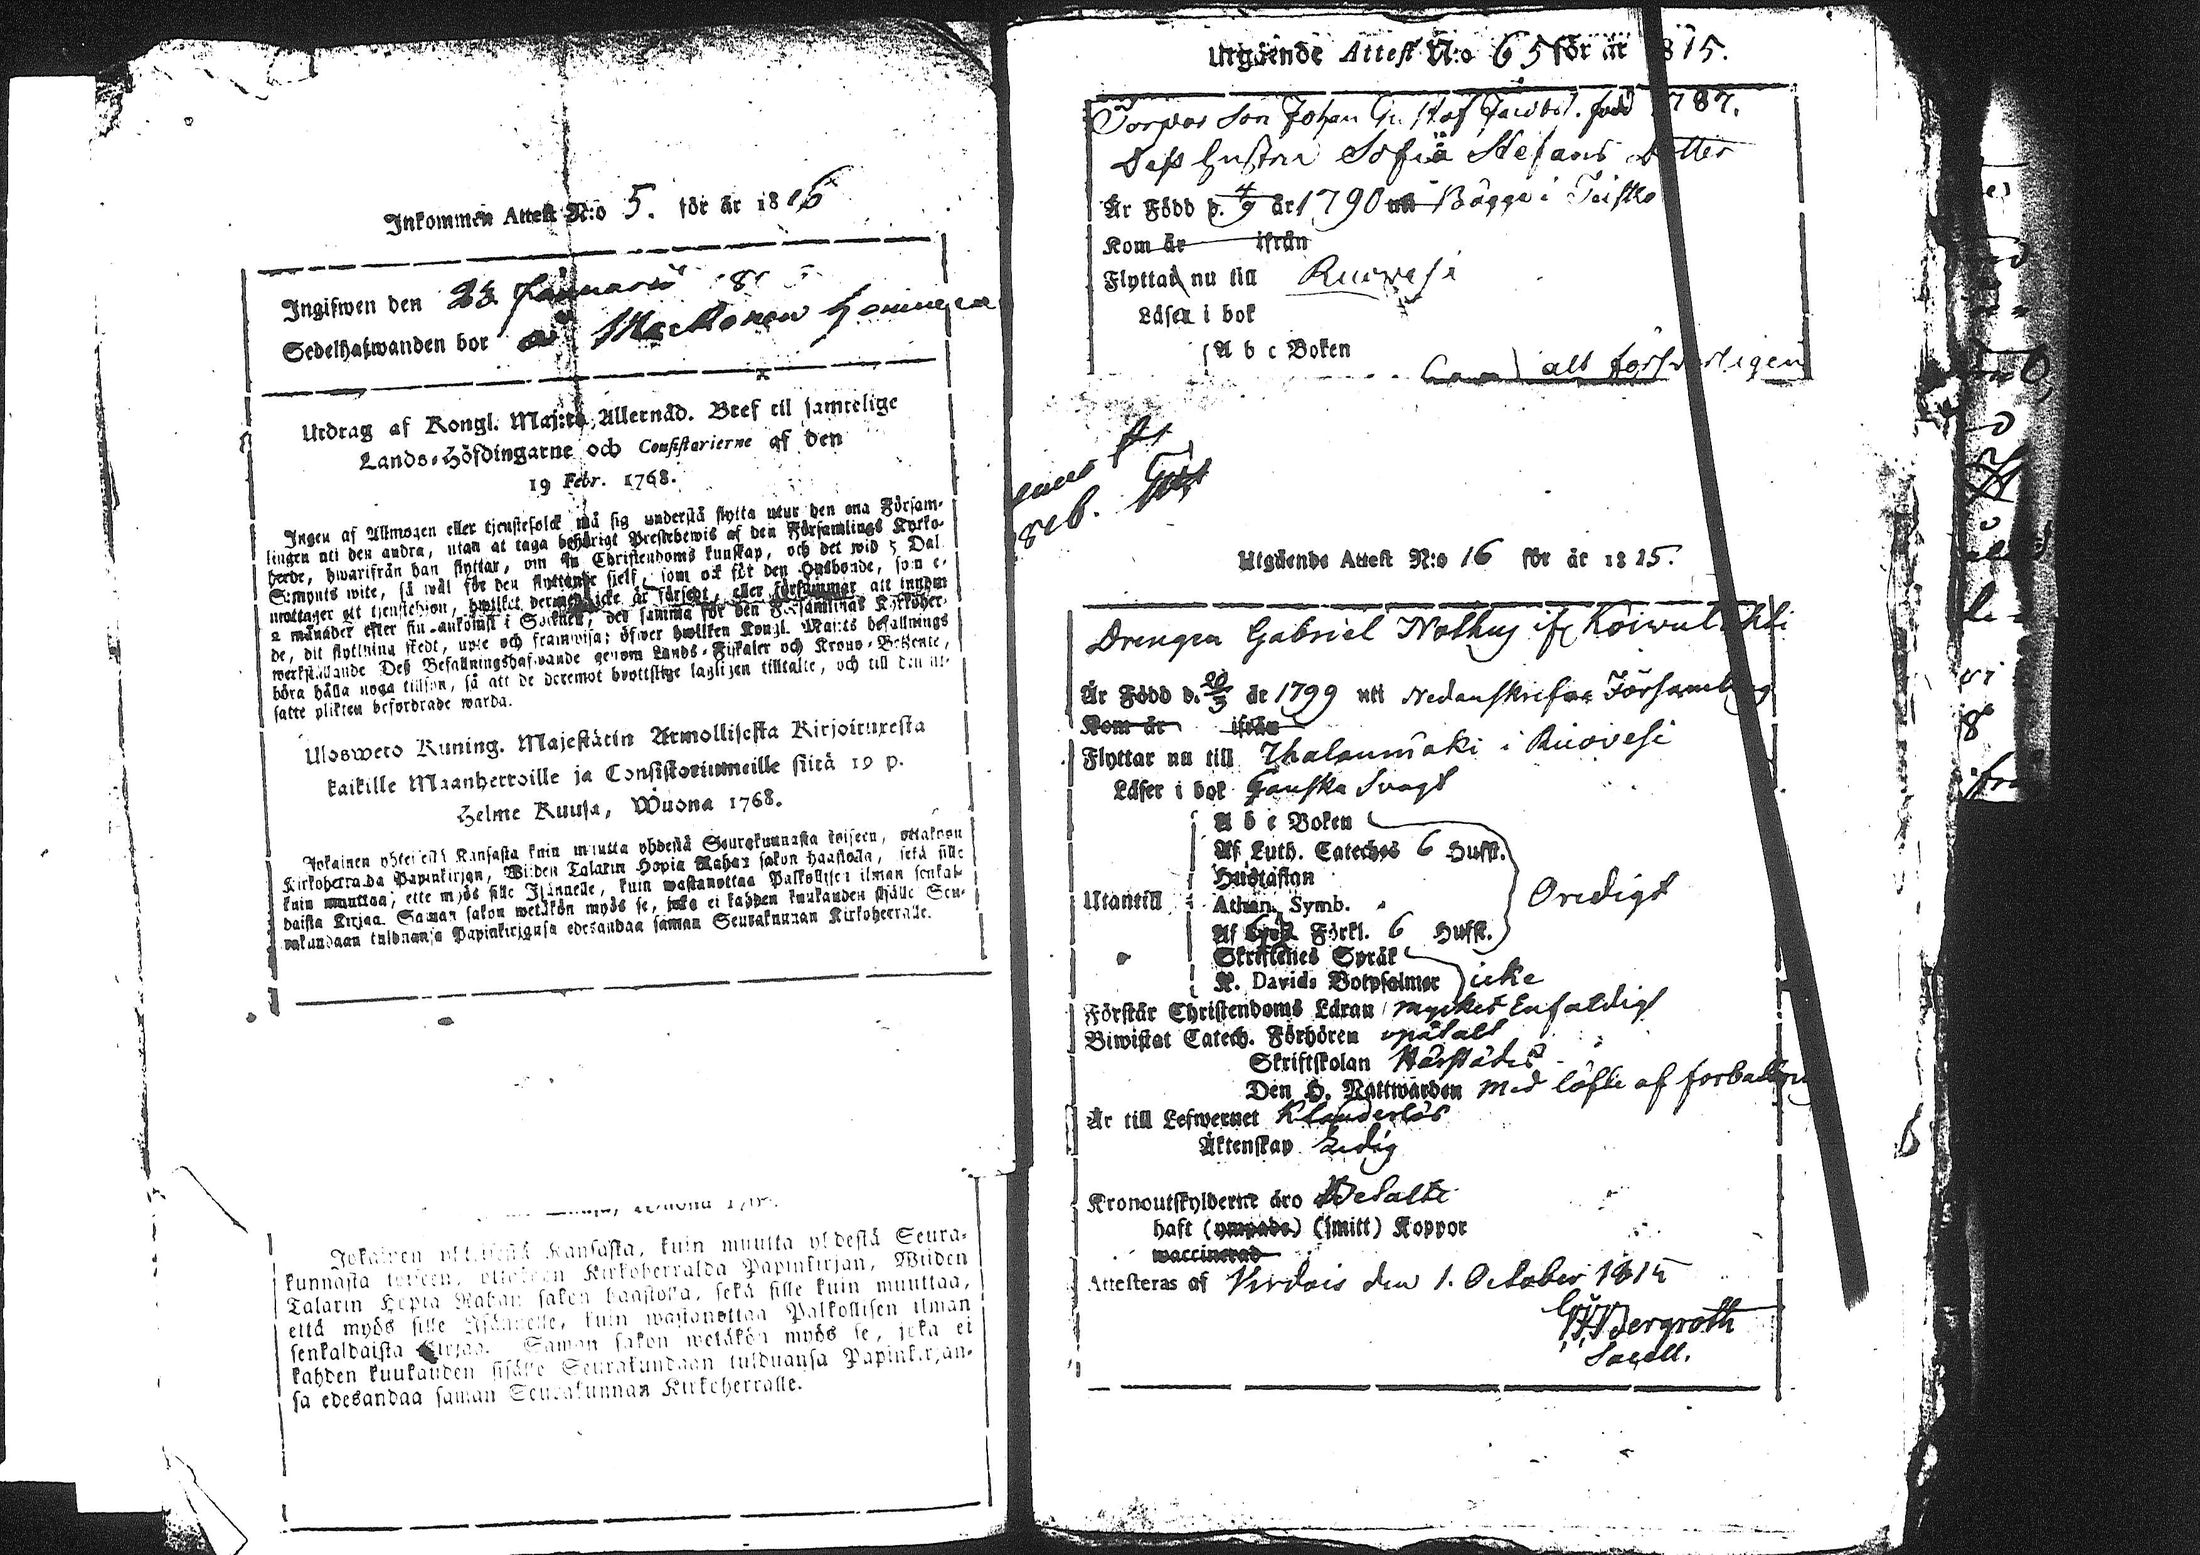 Inkommen Attest N:o 5. för år 1816
Ingifwen den 28 Januarii 181
Sedelhafwanden bor
Utdrag af Kongl. Maj:ts Allernåd. Bref til samtelige
Lands-Höfdingarne och Consistorierne af den
19 Febr. 1768.
Ingen af Allmogen eller tjenstefolck må sig understå flytta utur den ena Försam-
lingen uti den andra, utan at taga behörigt Prestebewis af den Församlings Kyrko-
herde, hwarifrån han flyttar, om sin Christendoms kunskap, och det wid 5 Dal.
S:mynts wite, så wäl för den flyttande sielf, som ock för den Husbonde, som e-
mottager ett tjenstehjon, hwilket dermed icke är försedt, eller försummar att innom
2 månader efter sin ankomst i Socknen, det samma för den Församlings Kyrkoher-
de, dit flyttning skedt, upte och framwisa; öfwer hwilken Kongl. Maj:ts befallnings
werkställande Deß Befallningshafwande genom Lands-Fiskaler och Krono-Betjente,
böra hålla noga tillsyn, så att de deremot brottslige lagligen tilltalte, och till den ut-
satte plikten befordrade warda.
Ulosweto Kuning. Majestätin Armollisesta Kirjoituxesta
kaikille Maanherroille ja Consistoriumeille siitä 19 p.
Helme Kuusa, Wuona 1768.
Jokainen yhteisestä Kansasta kuin muutta yhdestä Seurakunnasta toiseen, ottakoon
Kirkoherralda Papinkirjan, Wiiden Talarin Hopia Rahan sakon haastolla, sekä sille
kuin muuttaa, että myös sille Isännelle, kuin wastanottaa Palkollisen ilman senkal-
daista Kirjaa. Saman sakon wetäkön myös se, joka ei kahden kuukauden sisälle Seu-
rakundaan tulduansa Papinkirjansa edesandaa saman Seurakunnan Kirkoherralle.
Jokainen yhteisestä Kansasta, kuin muutta yhdestä Seura-
kunnasta toiseen, ottakoon Kirkoherralda Papinkirjan, Wiiden
Talarin Hopia Rahan sakon haastolla, sekä sille kuin muuttaa,
että myös sille Isännelle, kuin wastanottaa Palkollisen ilman
senkaldaista Kirjaa. Saman sakon wetäkön myös se, joka ei
kahden kuukauden sisälle Seurakundaan tulduansa Papinkirjan-
sa edesandaa saman Seurakunnan Kirkoherralle.
Utgående Attest N:o 65 för år 1815.
Torpar Son Johan Gustaf Jacobs. född 1787.
Dess hustru Sofia Stefans Dotter
Är Född d. 4/9 år 1790 uti Bägge i Teisko
Kom år ifrån
Flyttar nu till Ruovesi
Läser i bok
A b c Boken
alt försvarligen
Utgående Attest N:o 16 för år 1815.
Drengen Gabriel Nothus ifr Koiwulahti
Är Född d. 20/3 år 1799 uti Nedanskrifne Församling
Kom år ifrån
Flyttar nu till Ihalanmäki i Ruovesi
Läser i bok Ganska Svagt
A b c Boken
Af Luth. Cateches 6 Hufst.
Hustaflan
Utantill Athan. Symb. Oredigt
Af Förkl. 6 Hufst.
Skriftenes Språk
K. Davids Botpsalmer icke
Förstår Christendoms Läran mycket Enfaldigt
Biwistat Catech. Förhören opåtalt
Skriftskolan Härstädes
Den H. Nattwarden med löfte af forbättring
Är till Lefwernet Klanderlös
Äktenskap Ledig
Kronoutskylderne äro Betalte
haft (ympade) (smitt) Koppor
waccinerad
Attesteras af Virdois den 1. October 1815
Bergroth
Sacell.